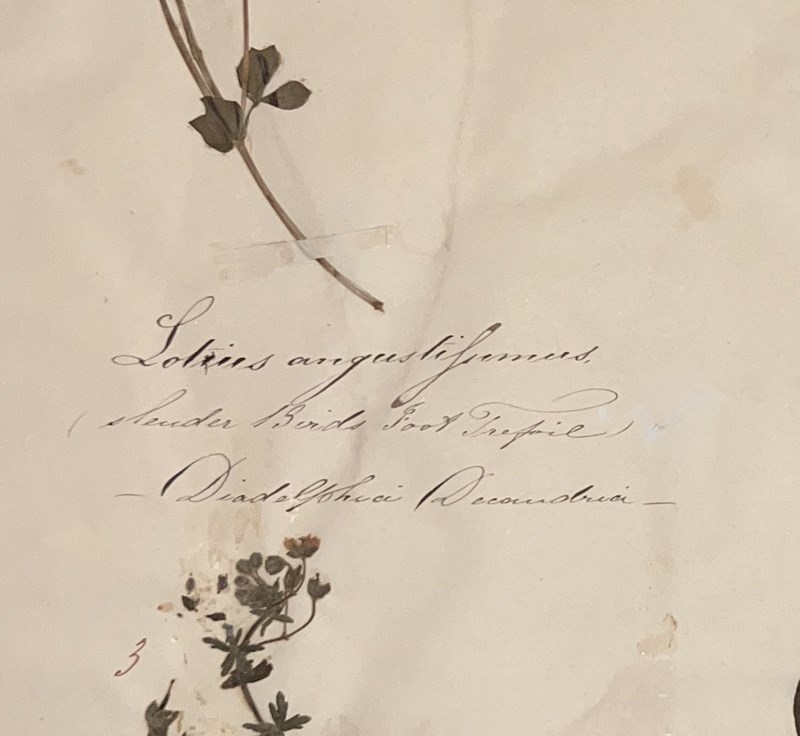 Lotus angustifsumus.
( slender Birds Foot Trefoil )
— Diadelphia Decandria —
3